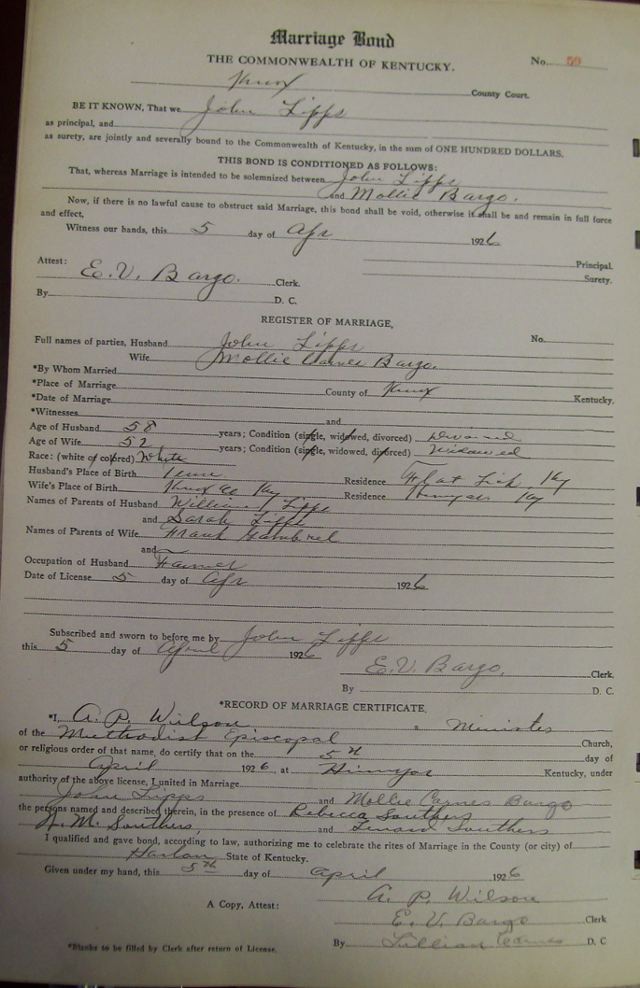 Marriage Bond
THE COMMONWEALTH OF KENTUCKY.
No. 59
Knox County Court.
BE IT KNOWN, That we John Lipps
as principal, and
as surety, are jointly and severally bound to the Commonwealth of Kentucky, in the sum of ONE HUNDRED DOLLARS.
THIS BOND IS CONDITIONED AS FOLLOWS:
That, whereas Marriage is intended to be solemnized between John Lipps
and Mollie Bargo.
Now, if there is no lawful cause to obstruct said Marriage, this bond shall be void, otherwise it shall be and remain in full force
and effect,
Witness our hands, this 5 day of Apr 1926
Principal.
Attest: Surety.
E. V. Bargo. Clerk.
By D. C.
REGISTER OF MARRIAGE,
Full names of parties, Husband John Lipps No.
Wife Mollie Carnes Bargo.
*By Whom Married
*Place of Marriage County of Knox Kentucky.
*Date of Marriage
*Witnesses and
Age of Husband 58 years; Condition (single, widowed, divorced) Divorced
Age of Wife 52 years; Condition (single, widowed, divorced) Widowed
Race: (white or colored) White
Husband's Place of Birth Tenn Residence Flat Lick, Ky
Wife's Place of Birth Knox Co Ky Residence Himyar Ky
Names of Parents of Husband William Lipps
and Sarah Lipps
Names of Parents of Wife Frank Gambrel
and
Occupation of Husband Farmer
Date of License 5 day of Apr 1926
Subscribed and sworn to before me by John Lipps
this 5 day of April 1926
E. V. Bargo, Clerk,
By D. C.
*RECORD OF MARRIAGE CERTIFICATE,
*I, A. P. Wilson a Minister
of the Muthodist Episcopal Church,
or religious order of that name, do certify that on the 5th day of
April 1926, at Himyar Kentucky, under
authority of the above license, I united in Marriage
John Lipps and Mollie Carnes Bargo
the persons named and described therein, in the presence of Rebecca Southers
H. M. Southers, and Southers
I qualified and gave bond, according to law, authorizing me to celebrate the rites of Marriage in the County (or city) of
Harlan State of Kentucky.
Given under my hand, this 5th day of April 1926
A. P. Wilson
A Copy, Attest: E. V. Bargo Clerk
By Lillian Carnes D. C
*Blanks to be filled by Clerk after return of License.